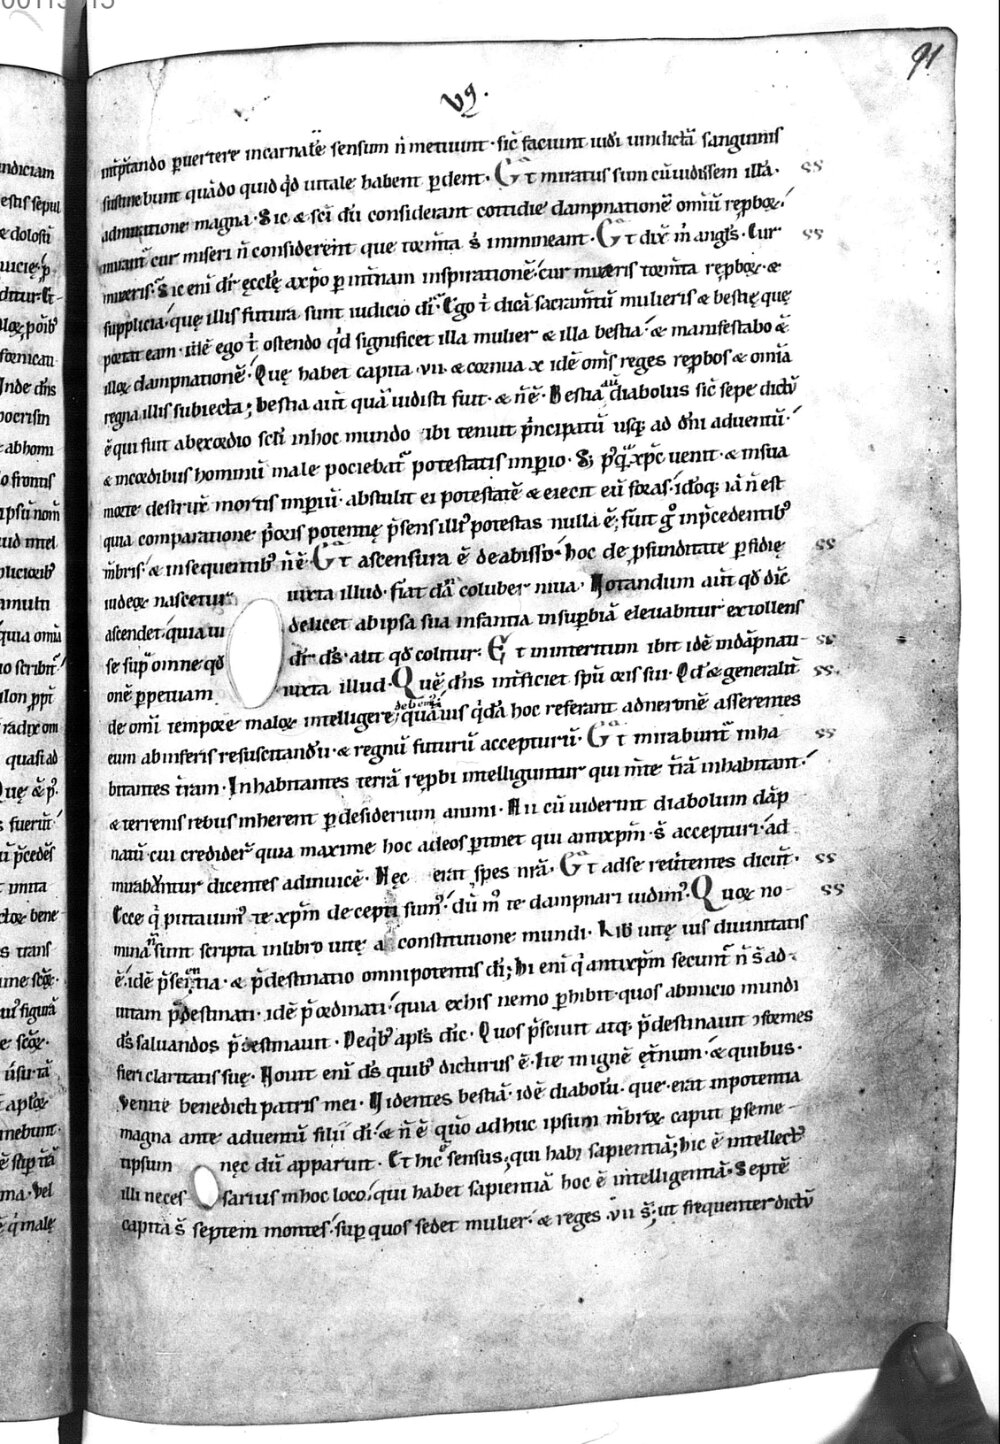 91
v9.
int̄p̄tando ꝑuertere incarnatē sensum n̄ metuunt · sic̄ faciunt iudi uindictā sanguinis
sustinebunt quādo quid qd̄ uitale habent ꝑdent · Et miratus sum cū uidissem illā ·
admiratione magna · Sic & sc̄i dn̄i considerant cottidie dampnationē omiū rep̄boꝝ ·
mirant̄ cur miseri n̄ considerent que tormta s̄ immineant · Et dix̄ m̄ angl̄s · Cur
miraris · Sic eni dr̄ ęcclę a xp̄o ꝑ int̄nam inspirationē · cur miraris tormta rep̄boꝝ · &
supplicia · quę illis futura sunt iudicio di · Ego t̄ dicā sacram̄tū mulieris & bestię quę
portat eam · idē ego t̄ ostendo qd̄ significet illa mulier & illa bestia · & manifestabo &
illoꝝ dampnationē · Quę habet capita · vii · & cornua x idē oms̄ reges rep̄bos & omīa
regna illis subiecta ; bestia aut̄ quā uidisti fuit · & n̄ ē · Bestia aū diabolus sic̄ sepe dictū
ē qui fuit ab exordio sc̄li in hoc mundo ibi tenuit p̄ncipatū usq; ad dn̄i aduentū ·
& in cordibus hominū male pociebat̄ potestatis imꝑio · S; pꝰqua xp̄c uenit · & in sua
morte destrux̄ mortis imꝑiū · abstulit ei potestatē & eiecit eū foras · idoq; iā n̄ est
quia comparatione p̄oris potentię p̄sens illiꝰ potestas nulla ē ; fuit gͦ in p̄cedentibꝰ
m̄bris · & in sequentibꝰ n̄ ē · Et ascensura ē de abisso · hoc de ꝓfunditate ꝑfidię
iudeoꝝ nascetur iuxta illud · fiat dā coluber in uia · Notandum aut̄ qd̄ dic̄
ascendet · quia ui delicet ab ipsa sua infantia in suꝑbiā eleuabitur extollens
se supͣ omne qd̄ dr̄ ds̄ · aut qd̄ colitur · Et in interitum ibit idē in dāpnati-
onē ꝑpetuam iuxta illud · Quē dn̄s int̄ficiet spū oris sui · Qd̄ & generalit̄
de omī tempore maloꝝ intelligere debemꝰ quāuis qd̄ā hoc referant ad neronē asserentes
eum ab inferis resuscitandū · & regnū futurū accepturū · Et mirabunt̄ inha
bitantes t̄ram · Inhabitantes terrā rep̄bi intelliguntur qui m̄te t̄rā inhabitant ·
& terrenis rebus inherent ꝑ desiderium animi · Hii cū uiderint diabolum dāp
natū · cui crediderꝰ quia maxime hoc ad eos ꝑtinet qui antixp̄m s̄ accepturi · ad
mirabuntur dicentes adinuicē · Hęc erat spes nr̄a · Et ad se reūtentes dicūt ·
Ecce q̄ putauimꝰ te xp̄m decepti sumꝰ · dū m̄ te dampnari uidimꝰ · Quoꝝ no-
mina n̄ sunt scripta in libro uitę a constitutione mundi · Lib̄ uitę uis diuinitatis
ē · idē p̄sentia · & p̄destinatio omnipotentis di ; hi eni q̄ antixp̄m secunt̄ n̄ s̄ ad-
uitam p̄destinati · idē p̄ordinati · quia ex his nemo ꝑhibit · quos ab inicio mundi
ds̄ saluandos p̄destinauit · De qͥbꝰ apls̄ dic̄ · Quos p̄sciuit atq; p̄destinauit ɔformes
fieri claritatis suę · Nouit eni ds̄ quibꝰ dicturus ē · Ite in ignē ęt̄num · & quibus ·
Venite benedicti patris mei · Uidentes bestiā · idē diabolū · que · erat in potentia
magna ante aduentū filii di · & n̄ ē quō adhuc ipsum m̄broꝝ caput ꝑ seme-
tipsum nęc dū apparuit · Et hic ē sensus ; qui hab̄ sapientiā ; hic ē intellectꝰ
illi neces sarius in hoc loco · qui habet sapientiā hoc ē intelligentiā · Septē
capita s̄ septem montes · suꝑ quos sedet mulier · & reges · vii s̄ ; ut frequenter dictū